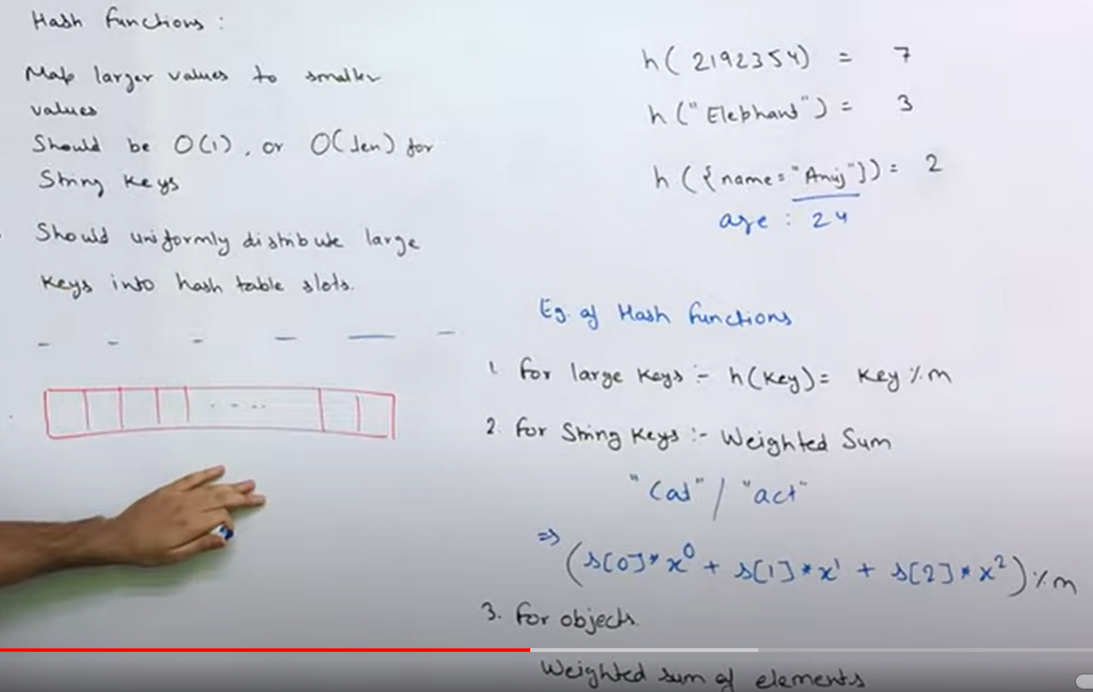 Hash functions :
Map larger values to smaller
values
Should be O(1), or O(len) for
String Keys
Should uniformly distribute large
Keys into hash table slots.
h( 2192354) = 7
h("Elephant") = 3
h({name: "Anuj"}) = 2
age : 24
Eg. of Hash functions
1. for large Keys :- h(Key) = Key % m
2. for String Keys :- Weighted Sum
"Cat" / "act"
=> (s[0]*x⁰ + s[1]*x¹ + s[2]*x²) % m
3. for objects.
Weighted sum of elements